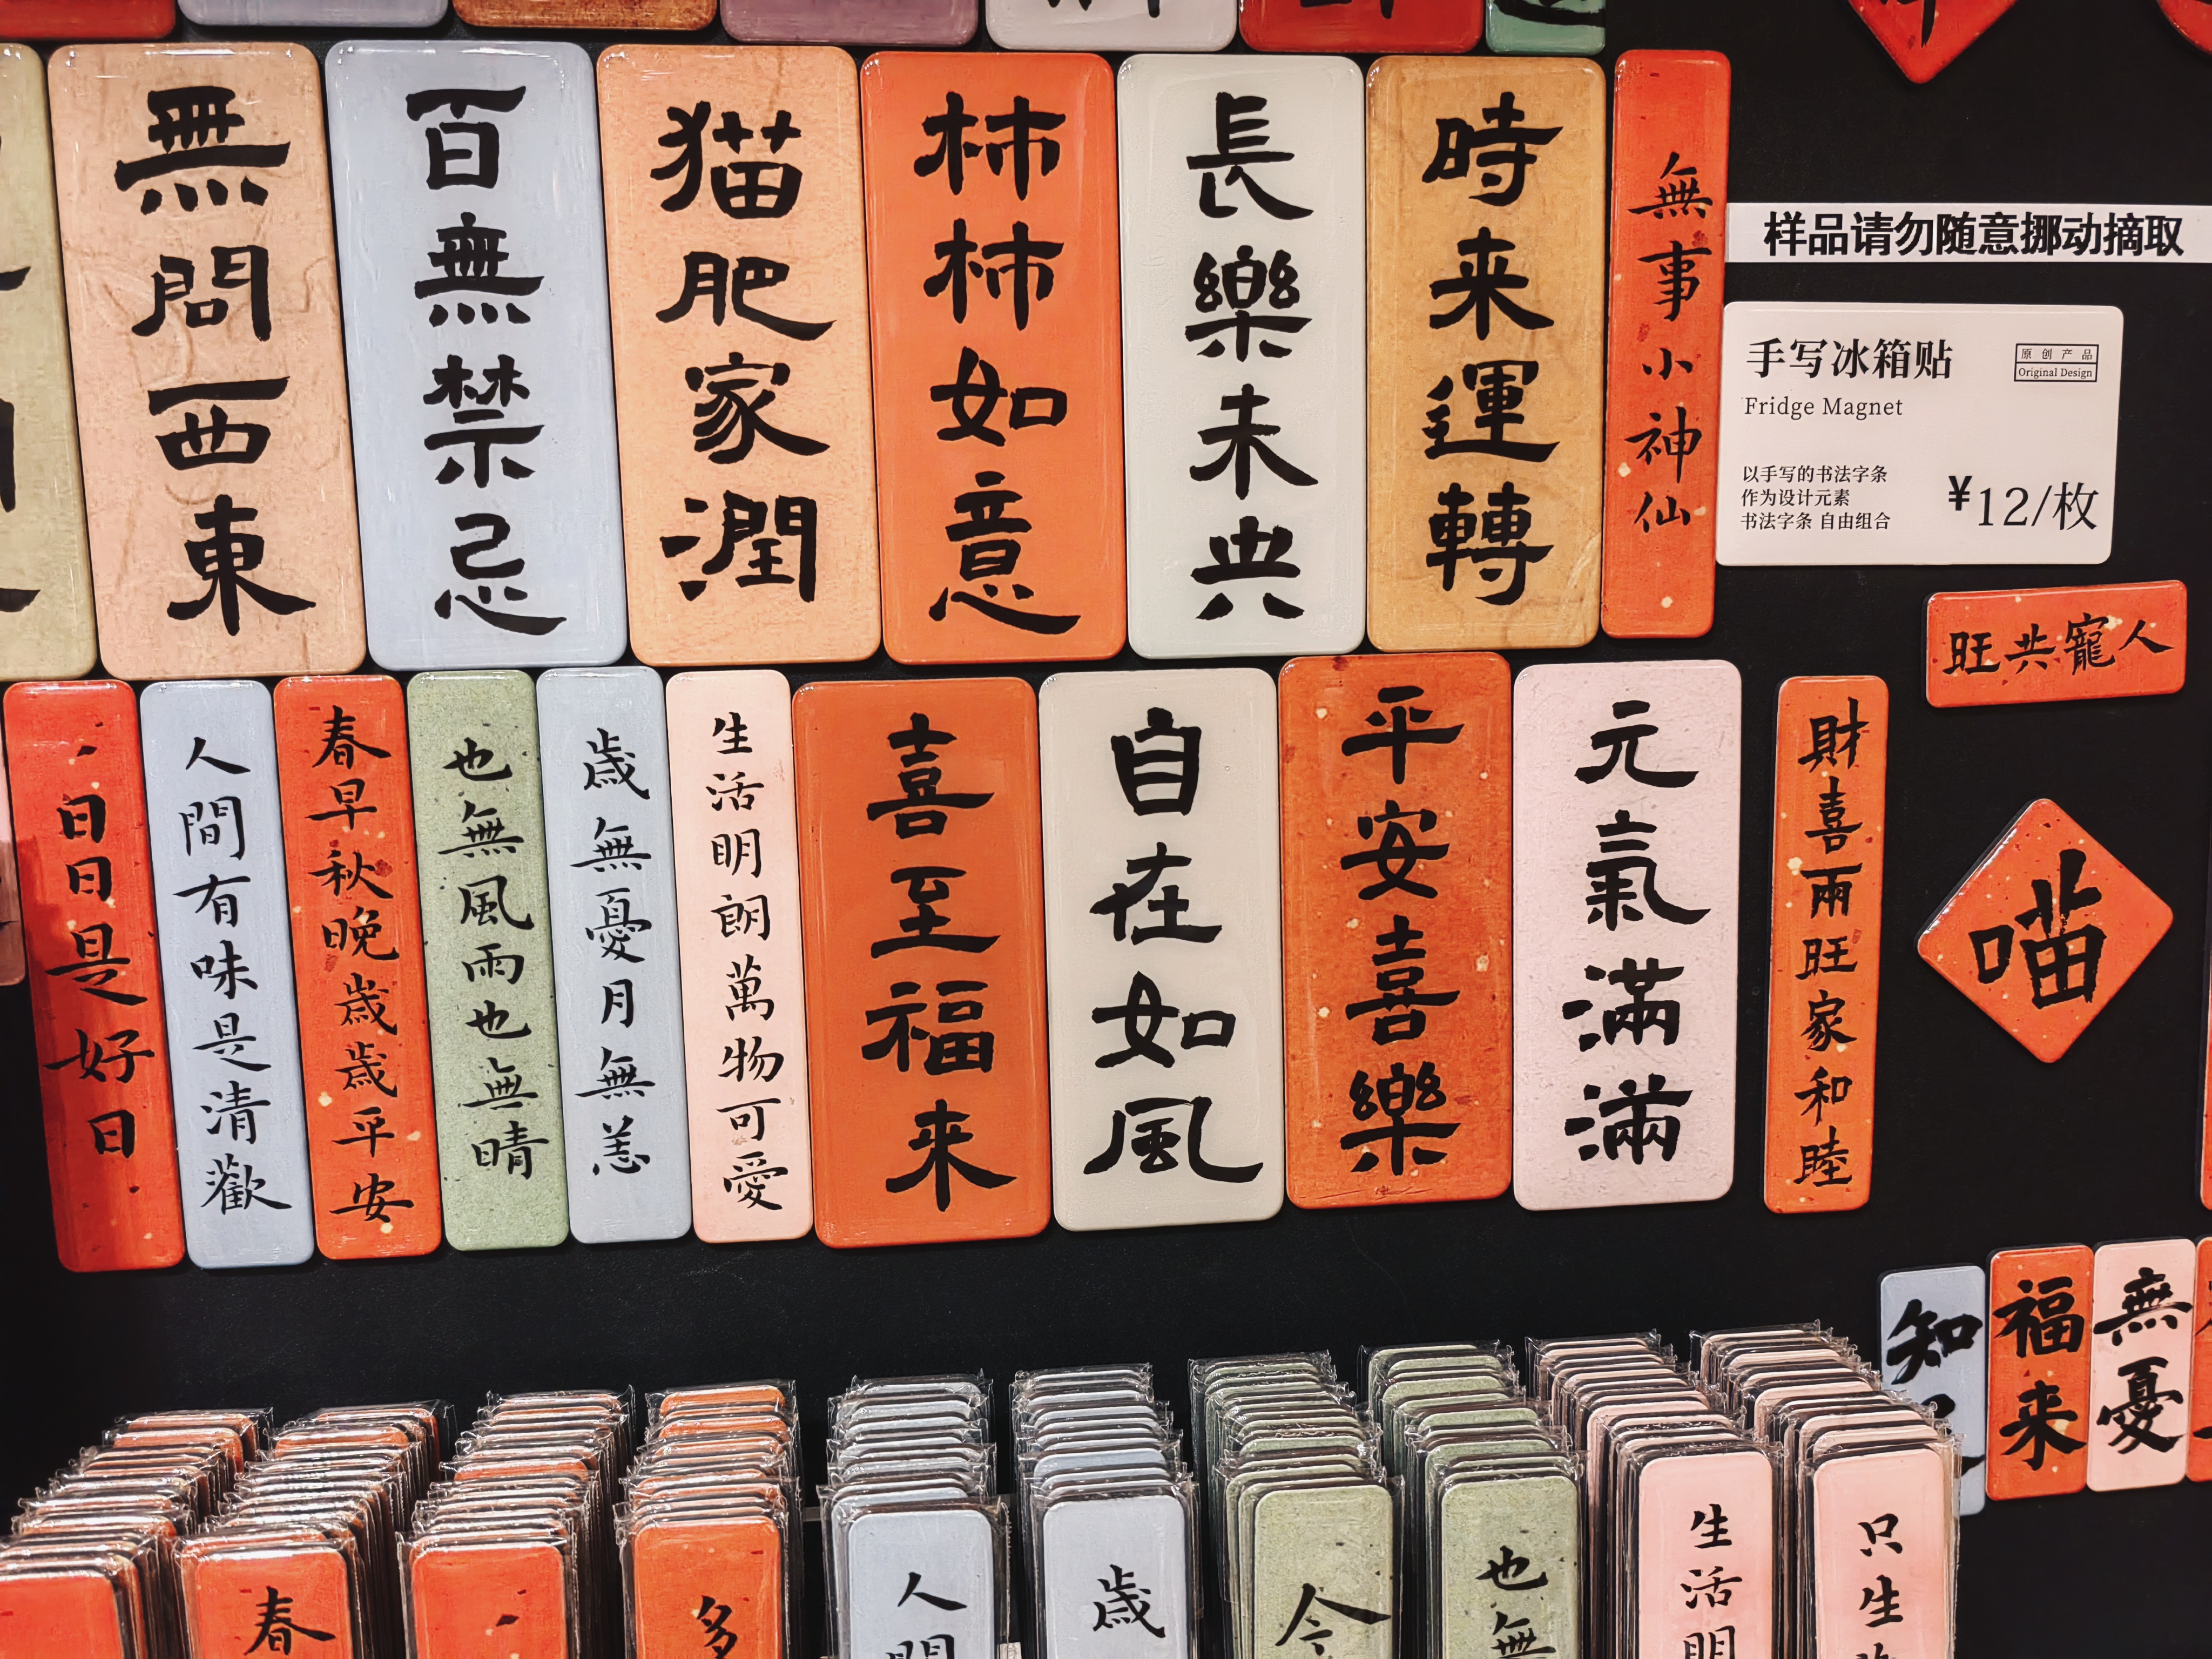 無問西東
百無禁忌
猫肥家潤
柿柿如意
長樂未央
時来運轉
無事小神仙
样品请勿随意挪动摘取
手写冰箱贴
原创产品
Original Design
Fridge Magnet
以手写的书法字条
作为设计元素
书法字条 自由组合
¥12/枚
旺共寵人
日日是好日
人間有味是清歡
春早秋晚歲歲平安
也無風雨也無晴
歲無憂月無恙
生活明朗萬物可愛
喜至福来
自在如風
平安喜樂
元氣滿滿
財喜兩旺家和睦
喵
知
福来
無憂
春
多
人間
歲
今
也無
生活明
只生